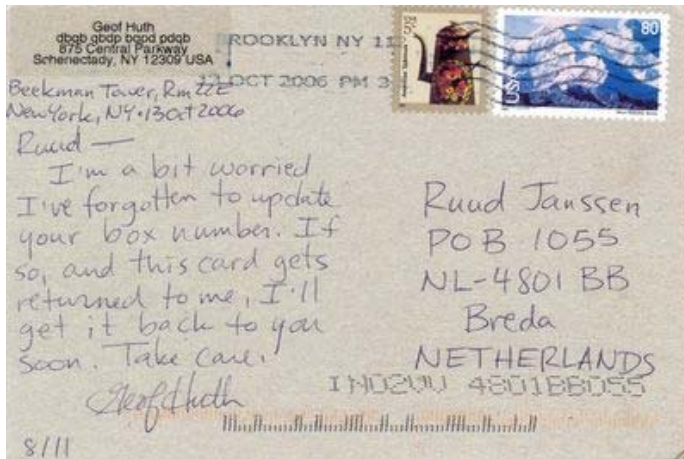 Geof Huth
dbqb qbdp bqpd pdqb
875 Central Parkway
Schenectady, NY 12309 USA
ROOKLYN NY 11
OCT 2006 PM 3
80
USA
Beekman Tower, Rm 22E
New York, NY • 13 Oct 2006
Ruud —
I'm a bit worried
I've forgotten to update
your box number. If
so, and this card gets
returned to me, I'll
get it back to you
soon. Take care.
Geof Huth
8/11
Ruud Janssen
POB 1055
NL-4801 BB
Breda
NETHERLANDS
4801BB055